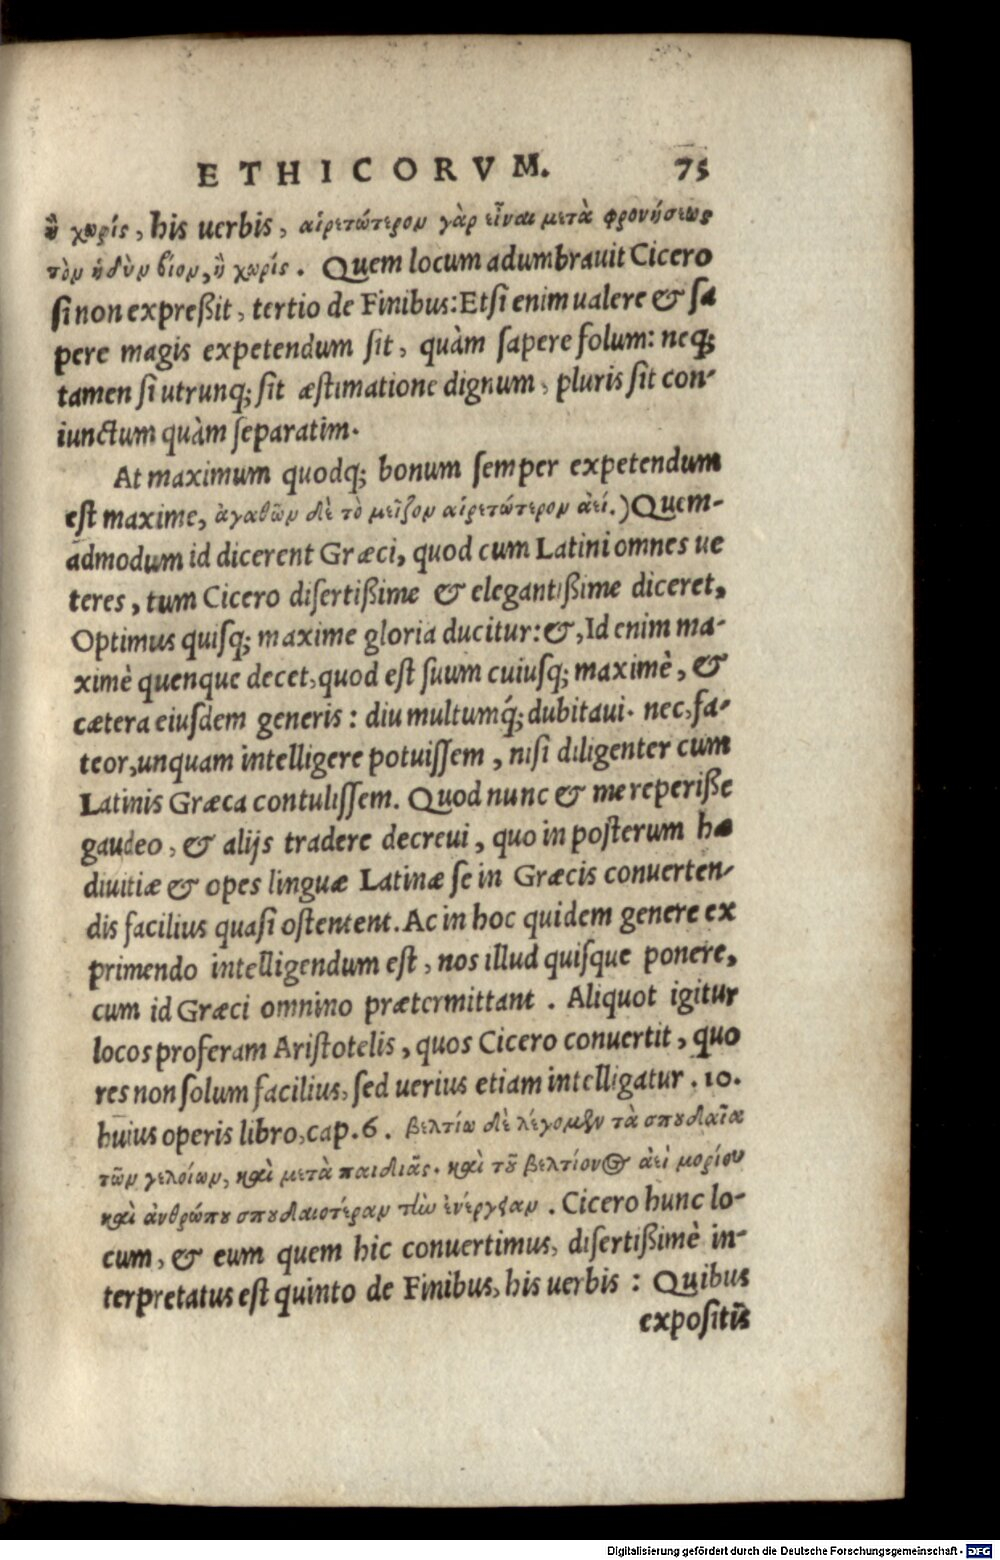 ETHICORVM. 75
ἢ χωρίς, his uerbis, αἱρετώτερον γὰρ εἶναι μετὰ φρονήσεως
τὸν ἡδὺν βίον, ἢ χωρίς. Quem locum adumbrauit Cicero
ſi non expreßit, tertio de Finibus: Etſi enim ualere & ſa
pere magis expetendum ſit, quàm ſapere ſolum: neq;
tamen ſi utrunq; ſit æſtimatione dignum, pluris ſit con-
iunctum quàm ſeparatim.
At maximum quodq; bonum ſemper expetendum
eſt maxime, ἀγαθῶν δὲ τὸ μεῖζον αἱρετώτερον ἀεί.) Quem-
admodum id dicerent Græci, quod cum Latini omnes ue
teres, tum Cicero diſertißime & elegantißime diceret,
Optimus quiſq; maxime gloria ducitur: &, Id enim ma-
ximè quenque decet, quod eſt ſuum cuiuſq; maximè, &
cætera eiuſdem generis: diu multumq́; dubitaui. nec, fa-
teor, unquam intelligere potuiſſem, niſi diligenter cum
Latinis Græca contuliſſem. Quod nunc & me reperiße
gaudeo, & alijs tradere decreui, quo in poſterum hæ
diuitiæ & opes linguæ Latinæ ſe in Græcis conuerten-
dis facilius quaſi oſtentent. Ac in hoc quidem genere ex
primendo intelligendum eſt, nos illud quiſque ponere,
cum id Græci omnino prætermittant. Aliquot igitur
locos proferam Ariſtotelis, quos Cicero conuertit, quo
res non ſolum facilius, ſed uerius etiam intelligatur. 10.
huius operis libro, cap. 6. βελτίω δὲ λέγομεν τὰ σπουδαῖα
τῶν γελοίων, καὶ μετὰ παιδιᾶς. καὶ τοῦ βελτίονος ἀεὶ μορίου
καὶ ἀνθρώπου σπουδαιοτέραν τὴν ἐνέργειαν. Cicero hunc lo-
cum, & eum quem hic conuertimus, diſertißimè in-
terpretatus eſt quinto de Finibus, his uerbis: Quibus
expoſitis
Digitalisierung gefördert durch die Deutsche Forschungsgemeinschaft - DFG